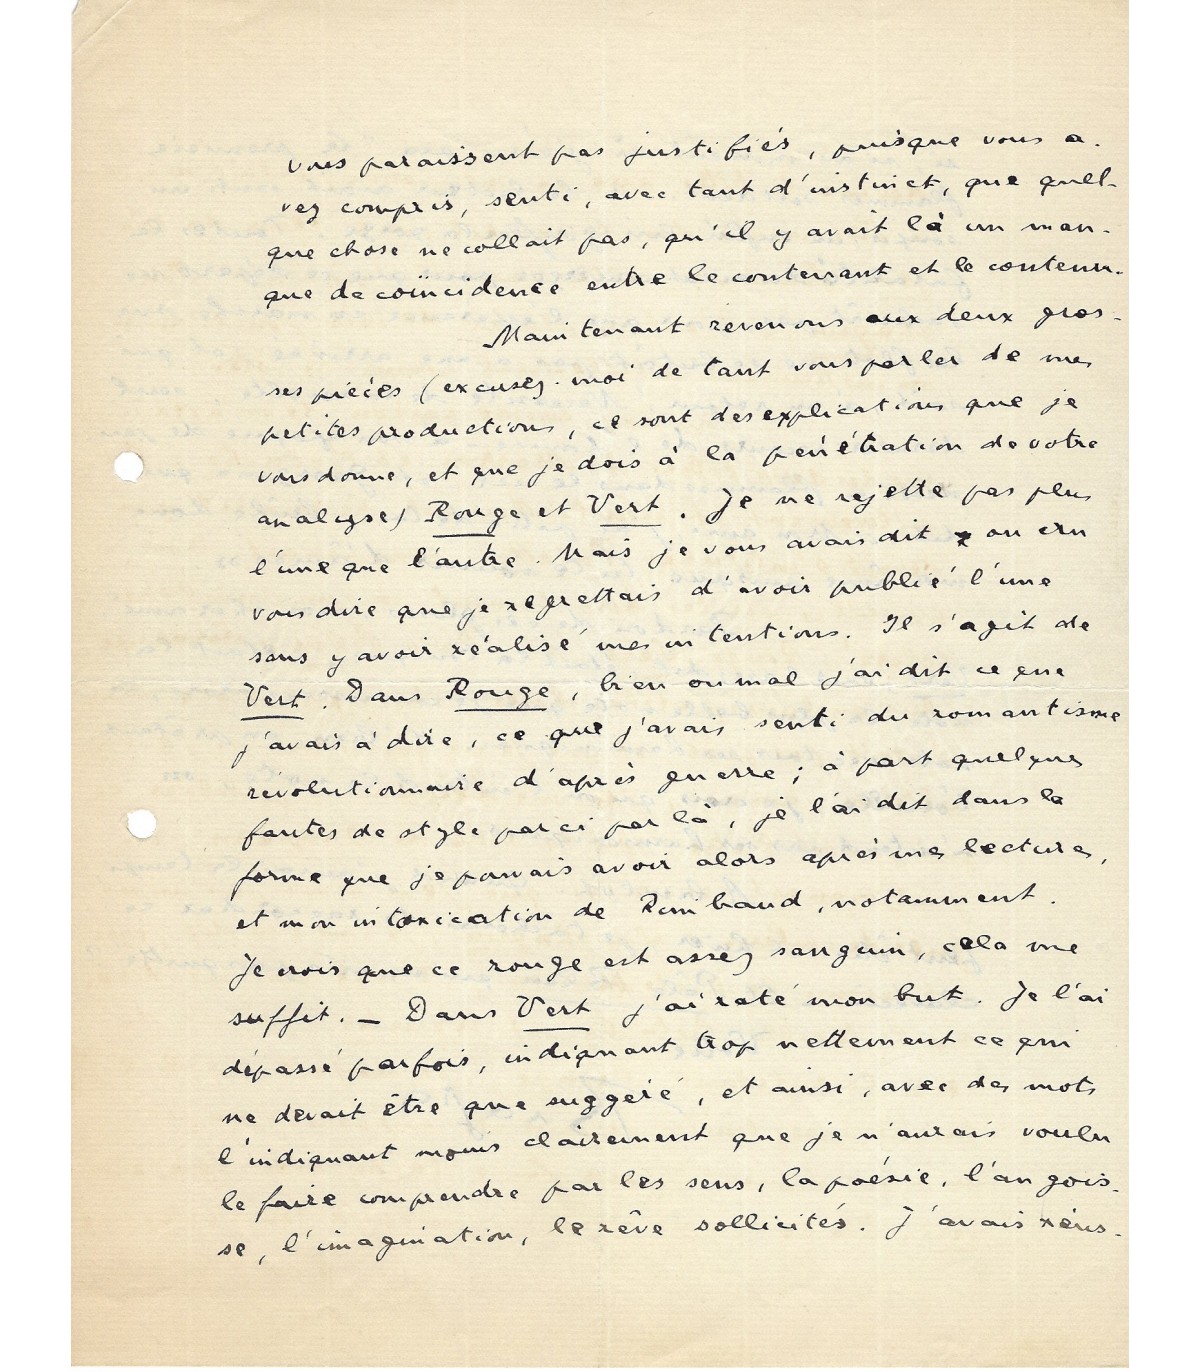 vous paraissent pas justifiés, puisque vous a-
vez compris, senti, avec tant d'instinct, que quel-
que chose ne collait pas, qu'il y avait là un man-
que de coïncidence entre le contenant et le contenu.
Maintenant revenons aux deux gros-
ses pièces (excusez-moi de tant vous parler de mes
petites productions, ce sont des explications que je
vous donne, et que je dois à la pénétration de votre
analyse) Rouge et Vert. Je ne rejette pas plus
l'une que l'autre. Mais je vous avais dit ou cru
vous dire que je regrettais d'avoir publié l'une
sans y avoir réalisé mes intentions. Il s'agit de
Vert. Dans Rouge, bien ou mal j'ai dit ce que
j'avais à dire, ce que j'avais senti du romantisme
révolutionnaire d'après guerre; à part quelques
fautes de style par ci par là, je l'ai dit dans la
forme que je pouvais avoir alors après mes lectures,
et mon intoxication de Rimbaud, notamment.
Je crois que ce rouge est assez sanguin, cela me
suffit. — Dans Vert j'ai raté mon but. Je l'ai
dépassé parfois, indiquant trop nettement ce qui
ne devait être que suggéré, et ainsi, avec des mots
l'indiquant moins clairement que je n'aurais voulu
le faire comprendre par les sens, la poésie, l'angois-
se, l'imagination, le rêve sollicités. J'avais réus-